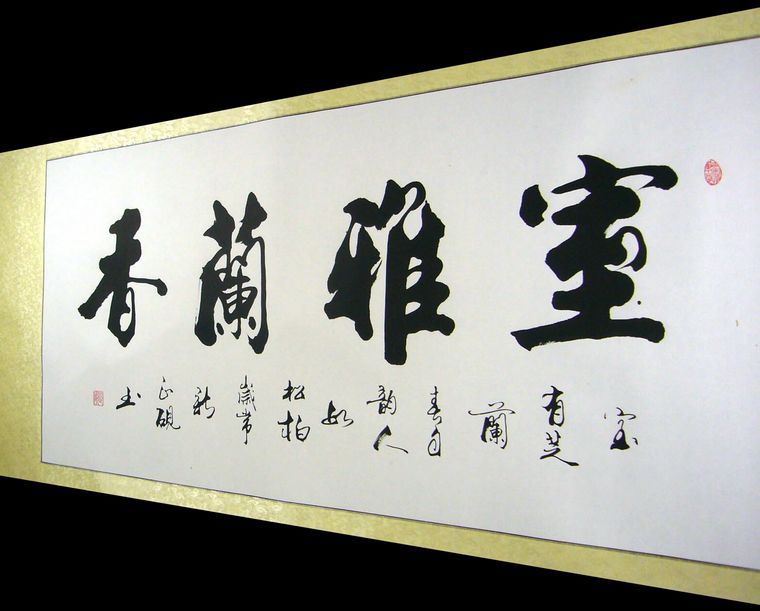 室雅蘭香
室有芝蘭春自韵人如松柏歲常新
正硯书